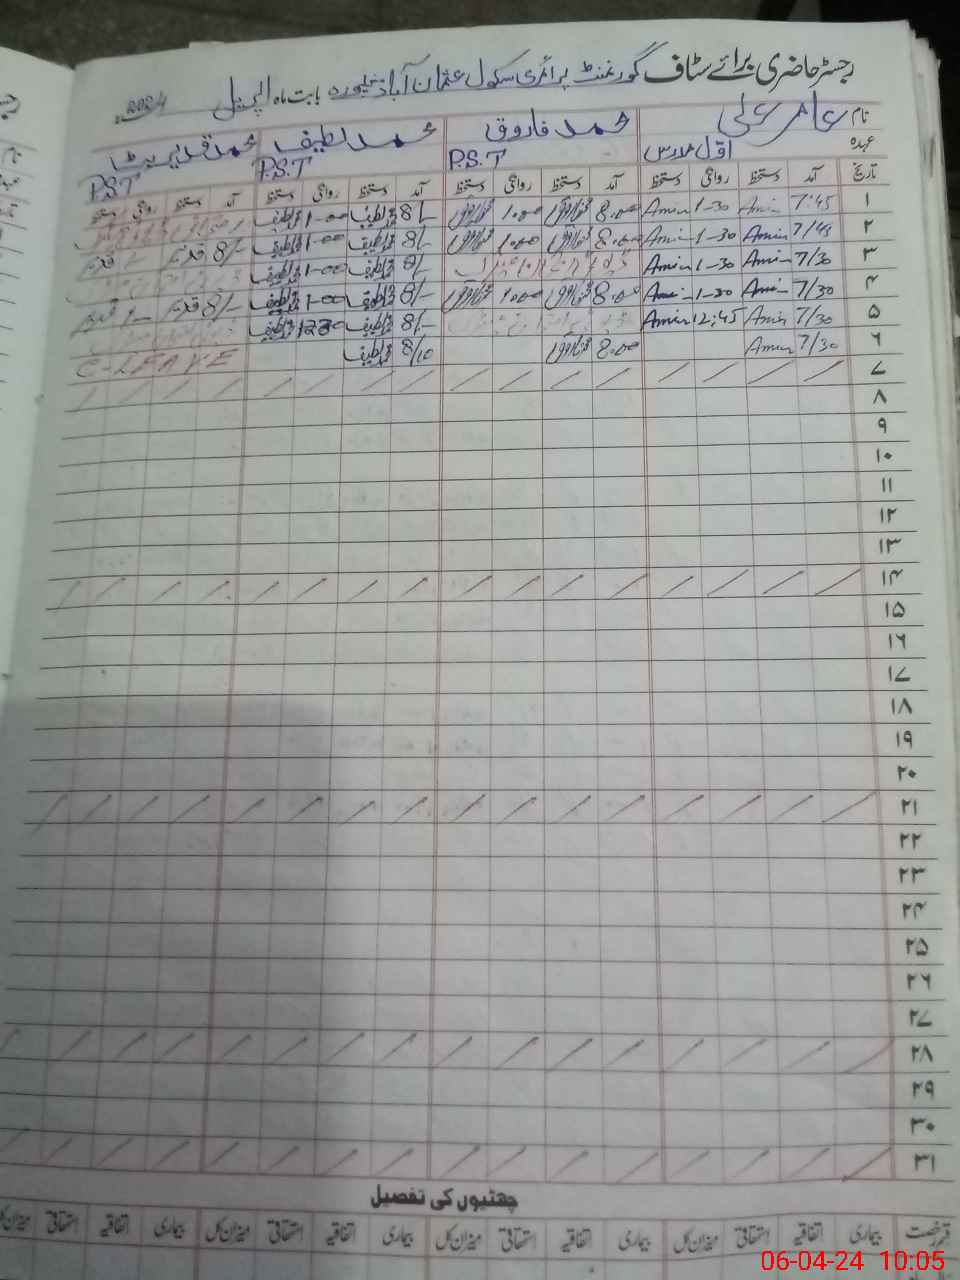 رجسٹر حاضری برائے سٹاف گورنمنٹ پرائمری سکول عثمان آباد بابت ماہ اپریل 2024
نام عامر علی محمد فاروق محمد لطیف محمد قدیر بٹ
عہدہ اول مدرس P.S.T P.S.T P.S.T
تاریخ آمد دستخط روانگی دستخط آمد دستخط روانگی دستخط آمد دستخط روانگی دستخط آمد دستخط روانگی دستخط
۱ 7:45 Amir 1-30 Amir 8:00 فاروق 1:00 فاروق 8/- محمد لطیف 1-00 محمد لطیف
۲ 7/45 Amir 1-30 Amir 8:00 فاروق 1:00 فاروق 8/- محمد لطیف 1-00 محمد لطیف 8/- قدیر 1- قدیر
۳ 7/30 Amir 1-30 Amir 8/- محمد لطیف 1-00 محمد لطیف
۴ 7/30 Amir 1-30 Amir 8:00 فاروق 1:00 فاروق 8/- محمد لطیف 1-00 محمد لطیف 8/- قدیر 1- قدیر
۵ 7/30 Amir 12:45 Amir 8/- محمد لطیف 1230 محمد لطیف
۶ 7/30 Amir 8:00 فاروق 8/10 محمد لطیف C-LEAVE
۷
۸
۹
۱۰
۱۱
۱۲
۱۳
۱۴
۱۵
۱۶
۱۷
۱۸
۱۹
۲۰
۲۱
۲۲
۲۳
۲۴
۲۵
۲۶
۲۷
۲۸
۲۹
۳۰
۳۱
چھٹیوں کی تفصیل
قسم رخصت بیماری اتفاقیہ استحقاقی میزان کل بیماری اتفاقیہ استحقاقی میزان کل بیماری اتفاقیہ استحقاقی میزان کل بیماری اتفاقیہ استحقاقی میزان کل
06-04-24 10:05